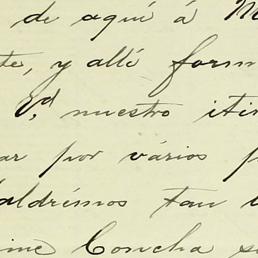 de aquí á M
te, y allé form
Vd nuestro itin
ar por vários p
aldrémos tan
ime Concha s